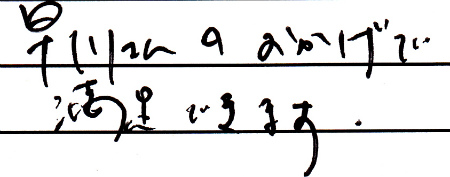 早川さんのおかげで
満足できます.